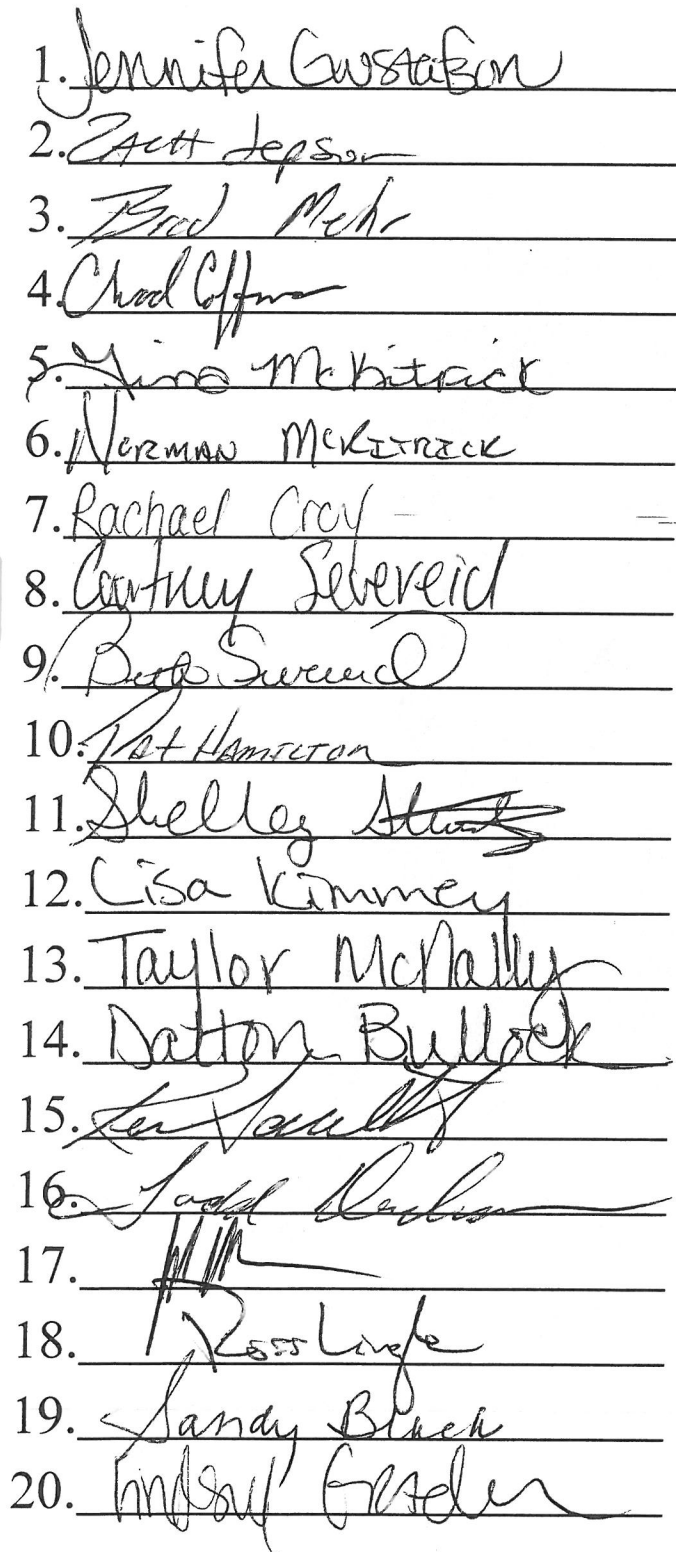 1. Jennifer Gustafson
2. Zach Jepson
3. Brad Mehr
4. Chad Coffman
5. McKitrick
6. Norman McKitrick
7. Rachael Croy
8. Courtney Severeid
9. Beth
10. Pat Hamilton
11. Shelley
12. Lisa Kimmey
13. Taylor McNally
14. Dalton Bullock
15. Ken
16. Todd
17.
18. Ross Lingle
19. Sandy Black
20. Lindsay